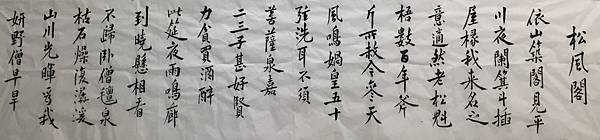 松風閣
依山築閣見平
川夜闌箕斗插
屋椽我來名之
意適然老松魁
梧數百年斧
斤所赦今參天
風鳴媧皇五十
弦洗耳不須
菩薩泉嘉
二三子甚好賢
力貧買酒醉
此筵夜雨鳴廊
到曉懸相看
不歸臥僧氈泉
枯石燥復潺湲
山川光暉為我
妍野僧